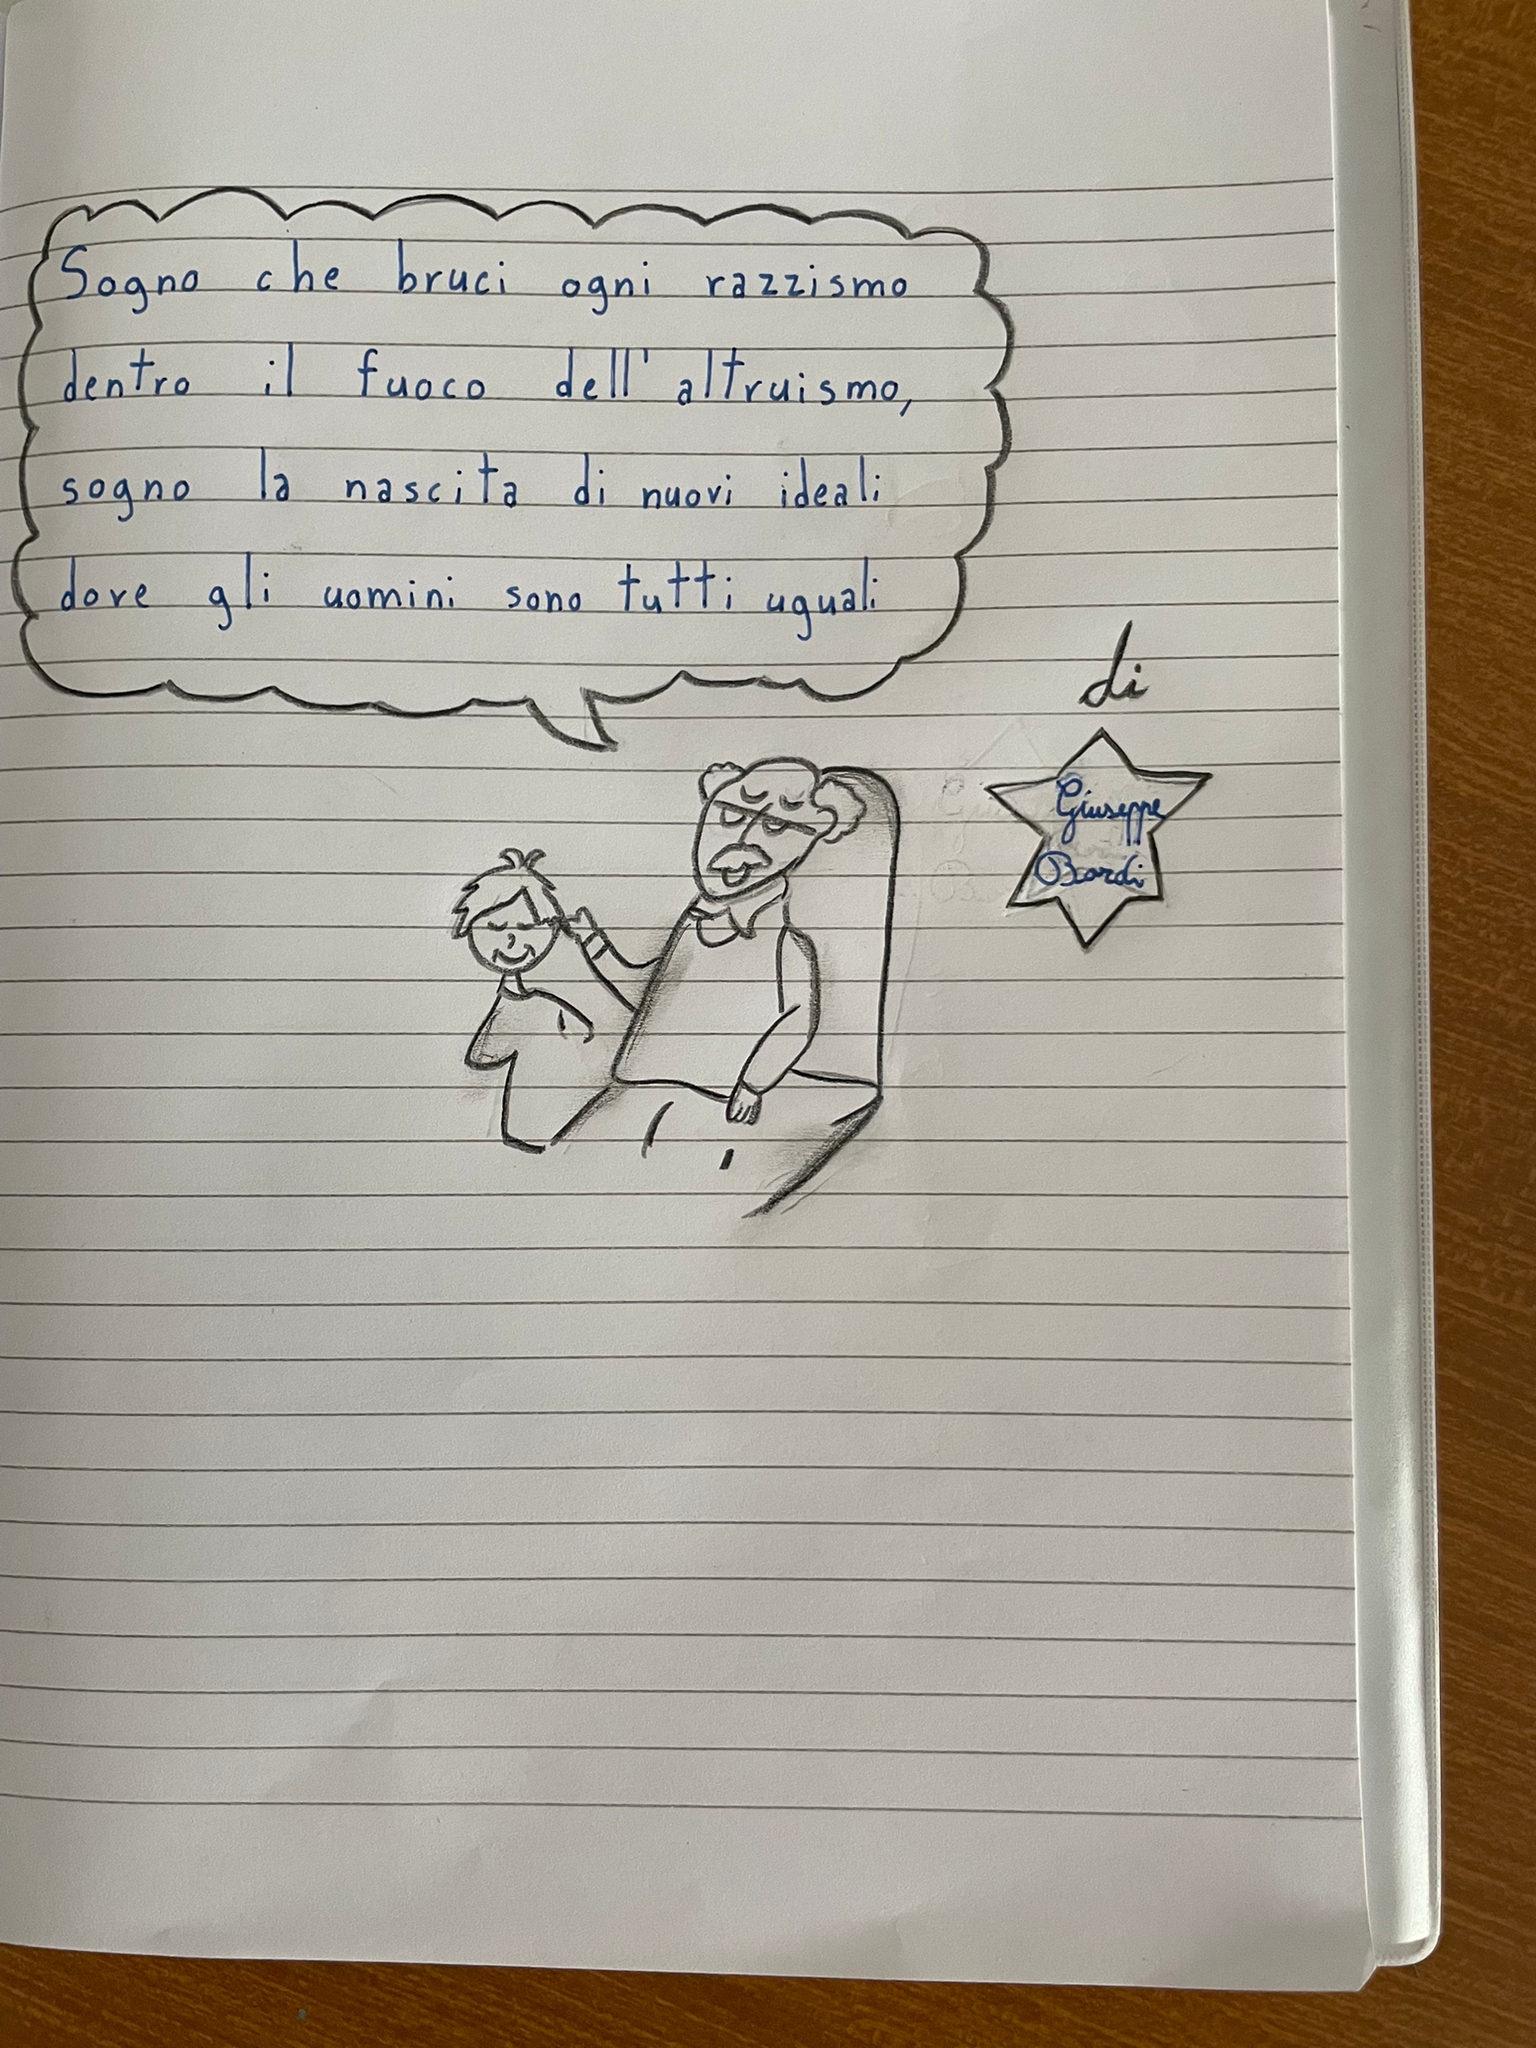 Sogno che bruci ogni razzismo
dentro il fuoco dell'altruismo,
sogno la nascita di nuovi ideali
dove gli uomini sono tutti uguali
di
Giuseppe
Bardi